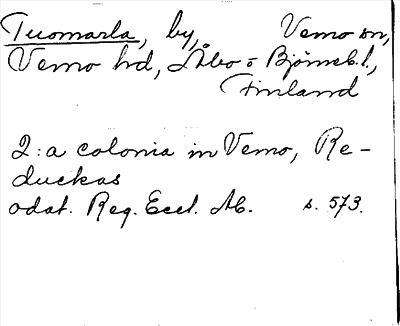 Tuomarla, by, Vemo sn,
Vemo hd, Åbo o Björneb. l.,
Finland
2: a colonia in Vemo, Re-
duckas
odat. Reg. Eccl. Ab. s. 573.